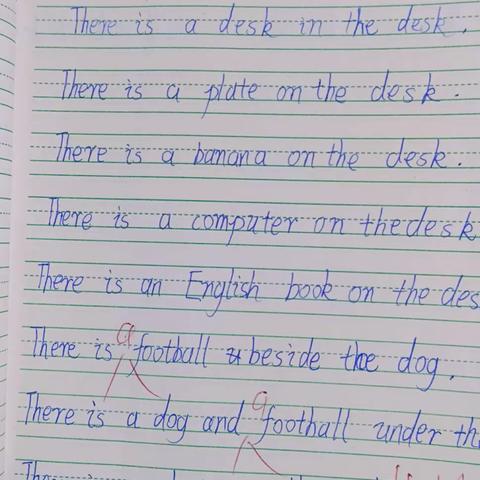 There is a desk in the desk.
There is a plate on the desk.
There is a banana on the desk.
There is a computer on the desk
There is an English book on the des
There is a football beside the dog.
There is a dog and a football under th